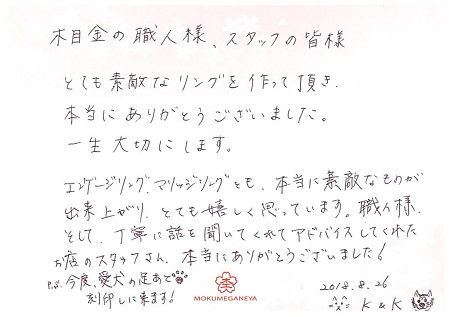 木目金の職人様、スタッフの皆様
とても素敵なリングを作って頂き、
本当にありがとうございました。
一生大切にします。
エンゲージリング、マリッジリングとも、本当に素敵なものが
出来上がり、とても嬉しく思っています。職人様、
そして、丁寧に話を聞いてくれてアドバイスしてくれた
お店のスタッフさん、本当にありがとうございました!
P.S. 今度、愛犬の足あと
刻印しに来ます!
MOKUMEGANEYA
2018.8.26
K & K